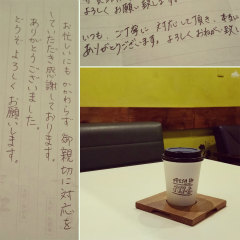 お忙しいにもかかわらず御親切に対応を
していただき感謝しております。
ありがとうございました。
どうぞよろしくお願いします。
よろしくお願い致します。
いつも、ご丁寧に対応して頂き、本当に
ありがとうございます。よろしくおねがい致します